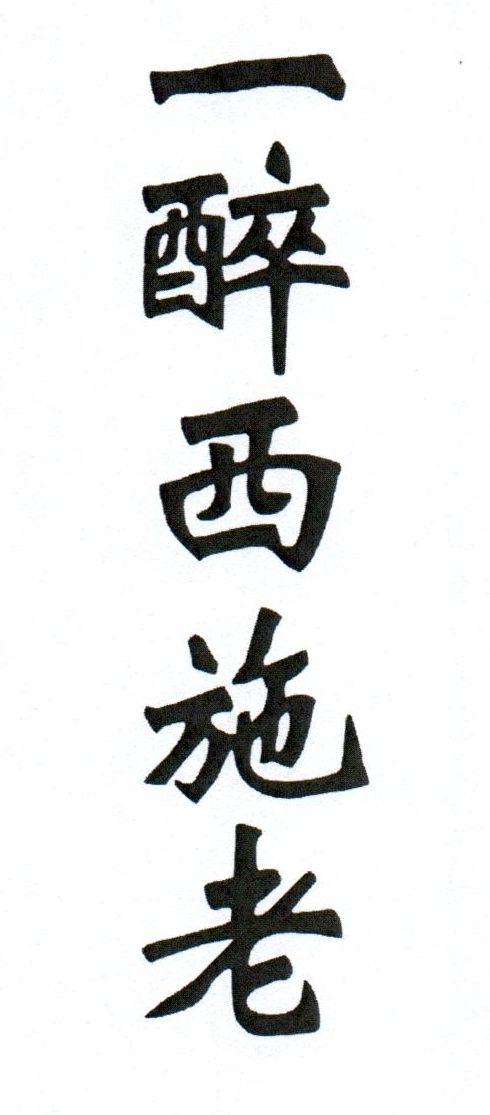 一醉西施老